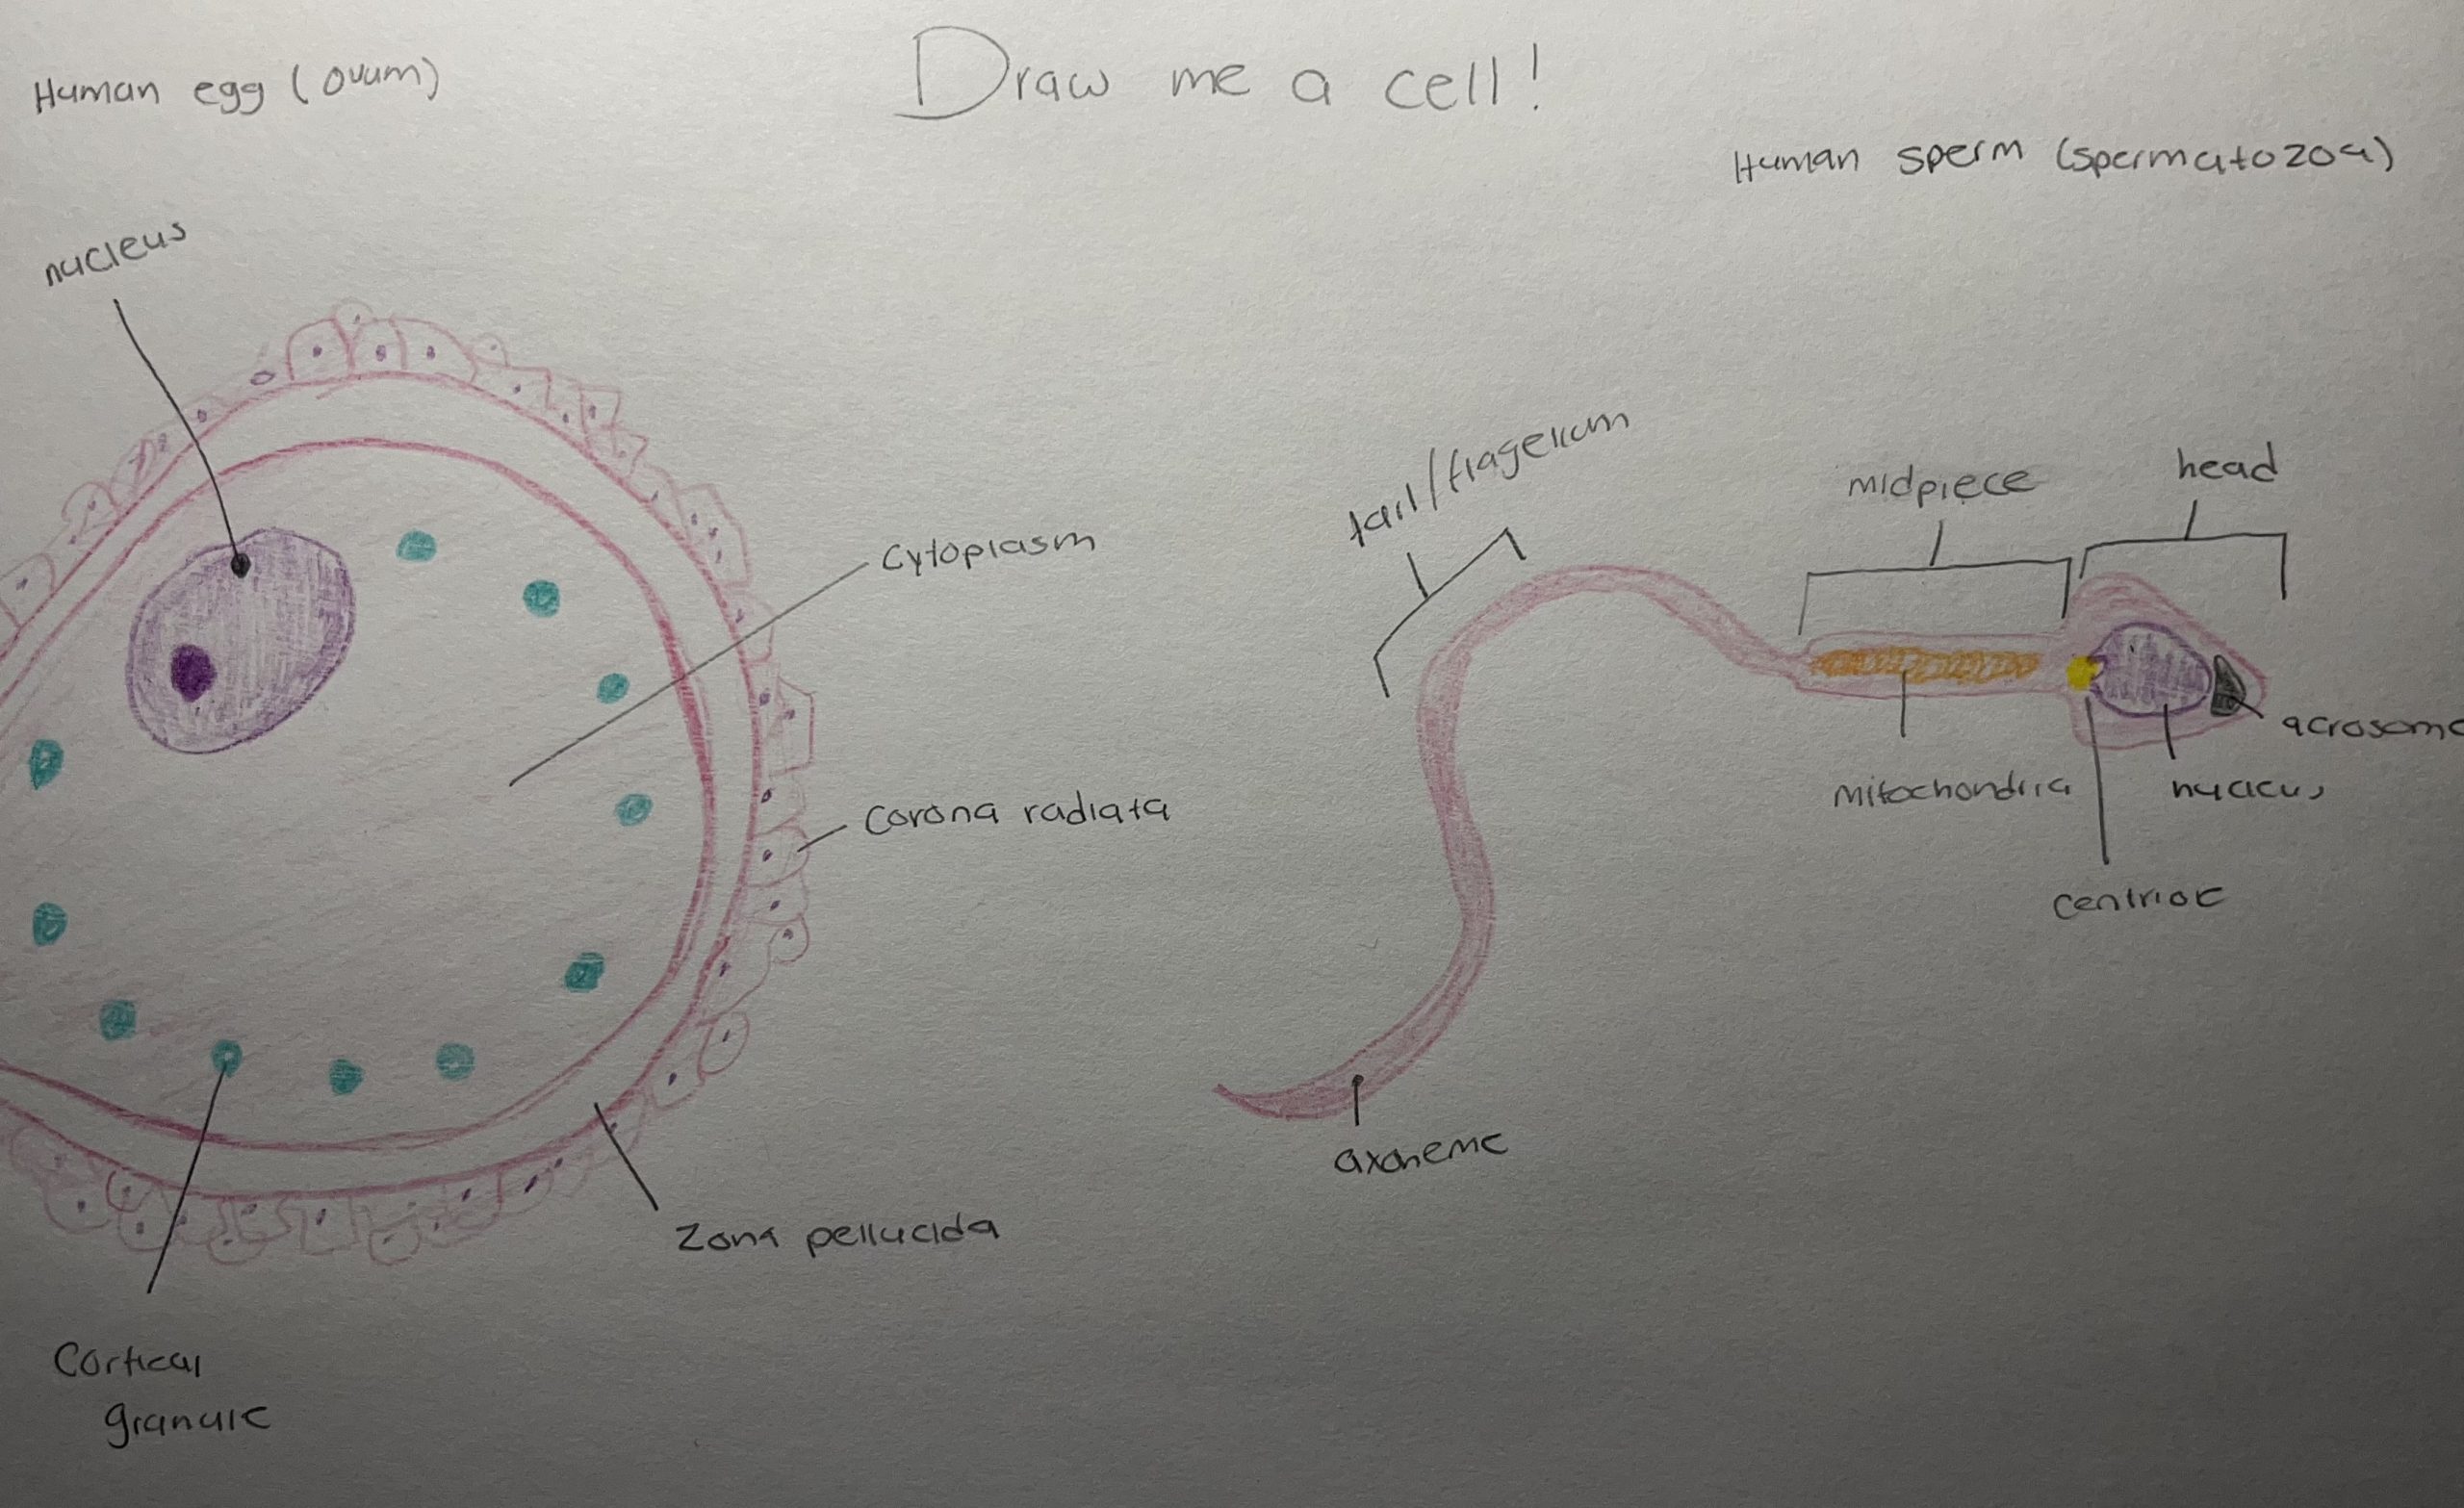 Draw me a cell!
Human egg (ovum)
nucleus
cytoplasm
corona radiata
Zona pellucida
Cortical
granule
Human sperm (spermatozoa)
tail/flagellum
midpiece
head
acrosome
mitochondria
nucleus
centriole
axoneme